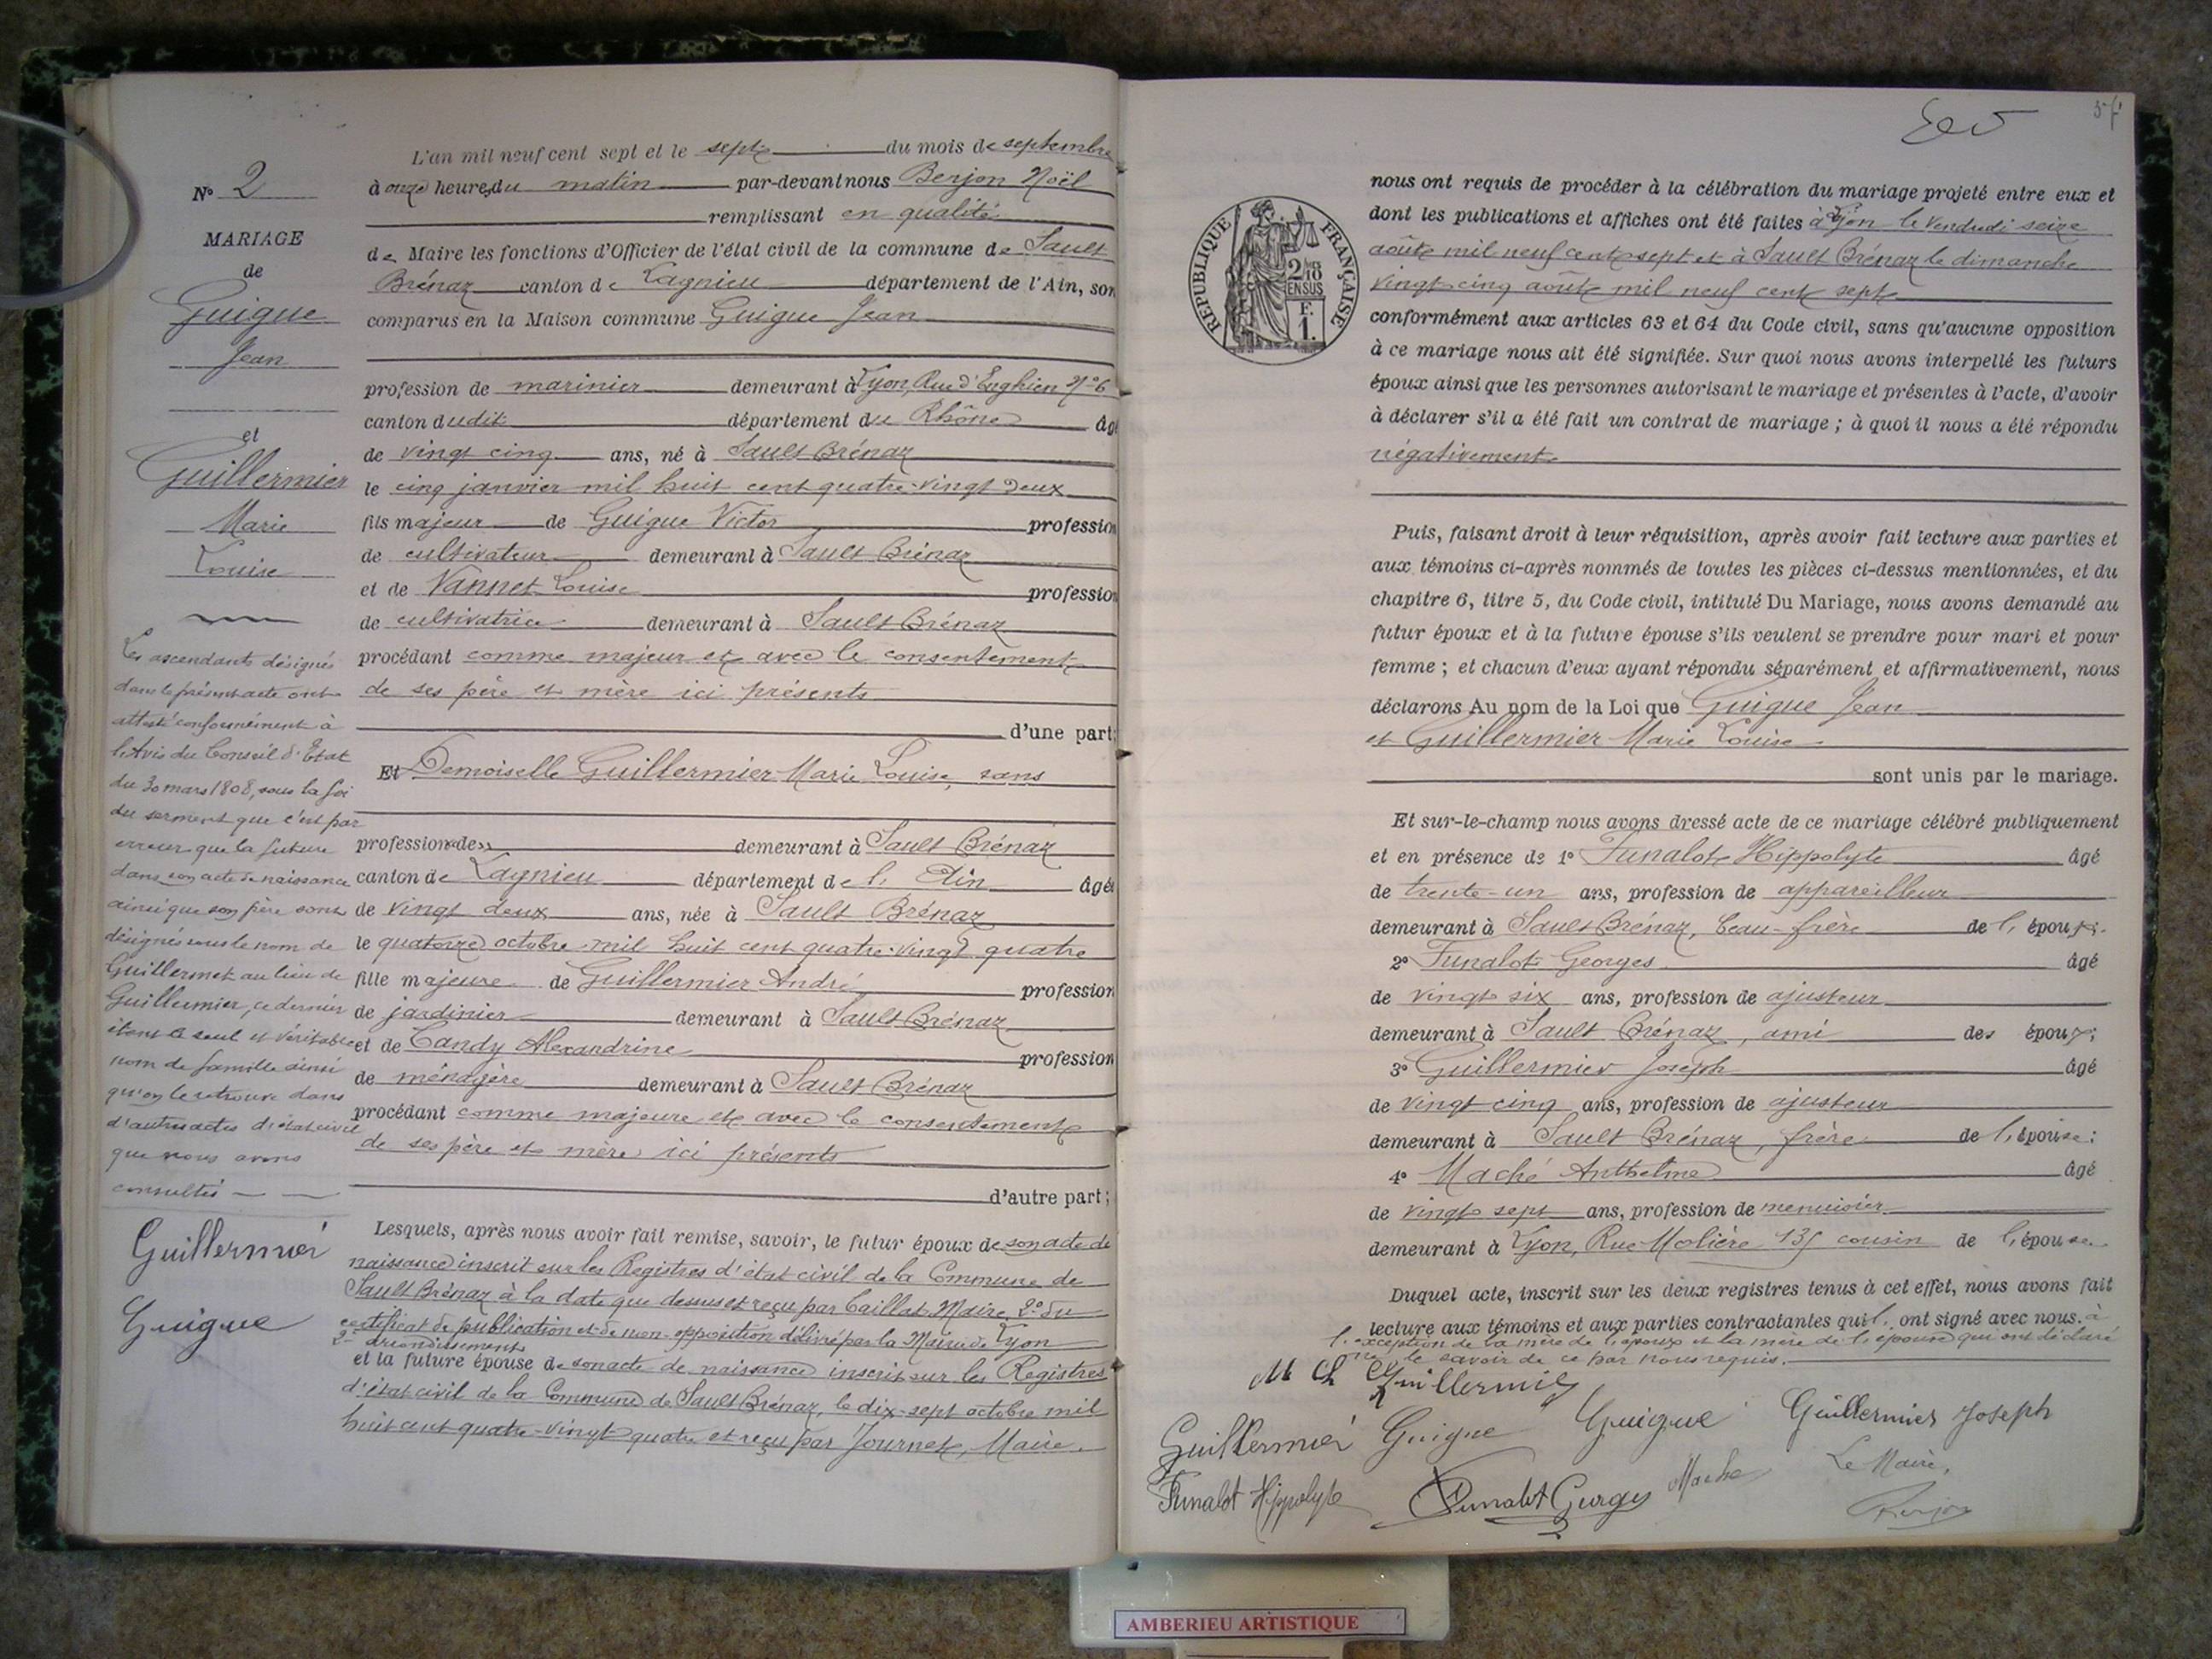 N° 2
MARIAGE
de
Guigue
Jean
et
Guillermier
Marie
Louise
Les ascendants désignés
dans le présent acte ont
attesté conformément à
l'Avis du Conseil d'Etat
du 30 mars 1808, sous la foi
du serment que c'est par
erreur que la future
dans son acte de naissance
ainsi que son père sont
désignés sous le nom de
Guillermet au lieu de
Guillermier, ce dernier
étant le seul et véritable
nom de famille ainsi
qu'on le retrouve dans
d'autres actes d'état civil
que nous avons
consultés
Guillermier
Guigue
L'an mil neuf cent sept et le sept du mois de septembre
à onze heures du matin par-devant nous Berjon Noël
remplissant en qualité
de Maire les fonctions d'Officier de l'état civil de la commune de Sault
Brénaz canton de Lagnieu département de l'Ain, son
comparus en la Maison commune Guigue Jean
profession de marinier demeurant à Lyon, Rue d'Enghien N° 6
canton dudit département du Rhône âg
de vingt cinq ans, né à Sault Brénaz
le cinq janvier mil huit cent quatre-vingt deux
fils majeur de Guigue Victor profession
de cultivateur demeurant à Sault Brénaz
et de Vannet Louise profession
de cultivatrice demeurant à Sault Brénaz
procédant comme majeur et avec le consentement
de ses père et mère ici présents
d'une part;
Et Demoiselle Guillermier Marie Louise, sans
profession de » demeurant à Sault Brénaz
canton de Lagnieu département de l'Ain âgé
de vingt deux ans, née à Sault Brénaz
le quatorze octobre mil huit cent quatre-vingt quatre
fille majeure de Guillermier André profession
de jardinier demeurant à Sault Brénaz
et de Candy Alexandrine profession
de ménagère demeurant à Sault Brénaz
procédant comme majeure et avec le consentement
de ses père et mère ici présents
d'autre part;
Lesquels, après nous avoir fait remise, savoir, le futur époux de son acte de
naissance inscrit sur les Registres d'état civil de la Commune de
Sault Brénaz à la date que dessus et reçu par Caillat Maire, 2° du
certificat de publication et de non-opposition délivré par la Mairie de Lyon
2e arrondissement
et la future épouse de son acte de naissance inscrit sur les Registres
d'état civil de la Commune de Sault Brénaz, le dix-sept octobre mil
huit cent quatre-vingt quatre et reçu par Journet, Maire.
57
REPUBLIQUE FRANÇAISE
2/10
EN SUS
F.
1.
nous ont requis de procéder à la célébration du mariage projeté entre eux et
dont les publications et affiches ont été faites à Lyon le vendredi seize
août mil neuf cent sept et à Sault Brénaz le dimanche
vingt-cinq août mil neuf cent sept
conformément aux articles 63 et 64 du Code civil, sans qu'aucune opposition
à ce mariage nous ait été signifiée. Sur quoi nous avons interpellé les futurs
époux ainsi que les personnes autorisant le mariage et présentes à l'acte, d'avoir
à déclarer s'il a été fait un contrat de mariage ; à quoi il nous a été répondu
négativement
Puis, faisant droit à leur réquisition, après avoir fait lecture aux parties et
aux témoins ci-après nommés de toutes les pièces ci-dessus mentionnées, et du
chapitre 6, titre 5, du Code civil, intitulé Du Mariage, nous avons demandé au
futur époux et à la future épouse s'ils veulent se prendre pour mari et pour
femme ; et chacun d'eux ayant répondu séparément et affirmativement, nous
déclarons Au nom de la Loi que Guigue Jean
et Guillermier Marie Louise
sont unis par le mariage.
Et sur-le-champ nous avons dressé acte de ce mariage célébré publiquement
et en présence de 1° Funalot Hippolyte âgé
de trente-un ans, profession de appareilleur
demeurant à Sault Brénaz, beau-frère de l'époux;
2° Funalot Georges âgé
de vingt six ans, profession de ajusteur
demeurant à Sault Brénaz, ami des époux;
3° Guillermier Joseph âgé
de vingt cinq ans, profession de ajusteur
demeurant à Sault Brénaz, frère de l'épouse;
4° Maché Anthelme âgé
de vingt sept ans, profession de menuisier
demeurant à Lyon, Rue Molière 135 cousin de l'épouse
Duquel acte, inscrit sur les deux registres tenus à cet effet, nous avons fait
lecture aux témoins et aux parties contractantes qui l. ont signé avec nous. à
l'exception de la mère de l'époux et la mère de l'épouse qui ont déclaré
ne le savoir de ce par nous requis.
M Guillermier
Guillermier Guigue Guigue Guillermier Joseph
Funalot Hippolyte Funalot Georges Mache Le Maire,
Berjon
AMBERIEU ARTISTIQUE